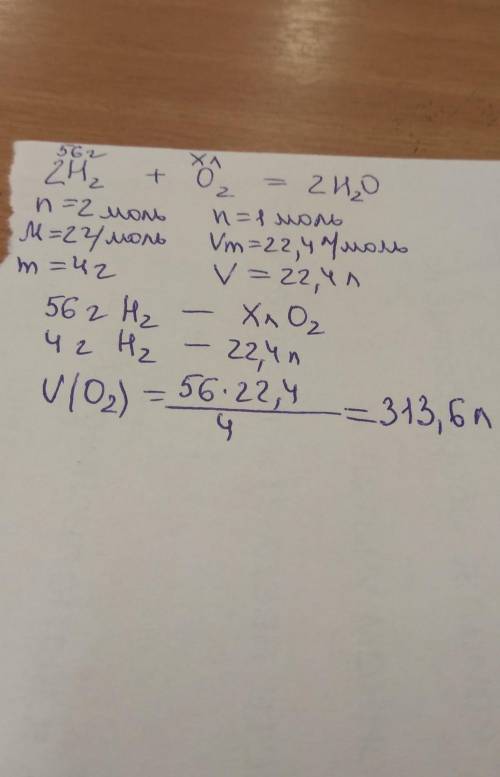 56 г            x л
2H₂ + O₂ = 2H₂O
n = 2 моль    n = 1 моль
M = 2 г/моль    Vm = 22,4 л/моль
m = 4 г    V = 22,4 л
56 г H₂ — x л O₂
4 г H₂ — 22,4 л
V(O₂) = 56·22,4 / 4 = 313,6 л